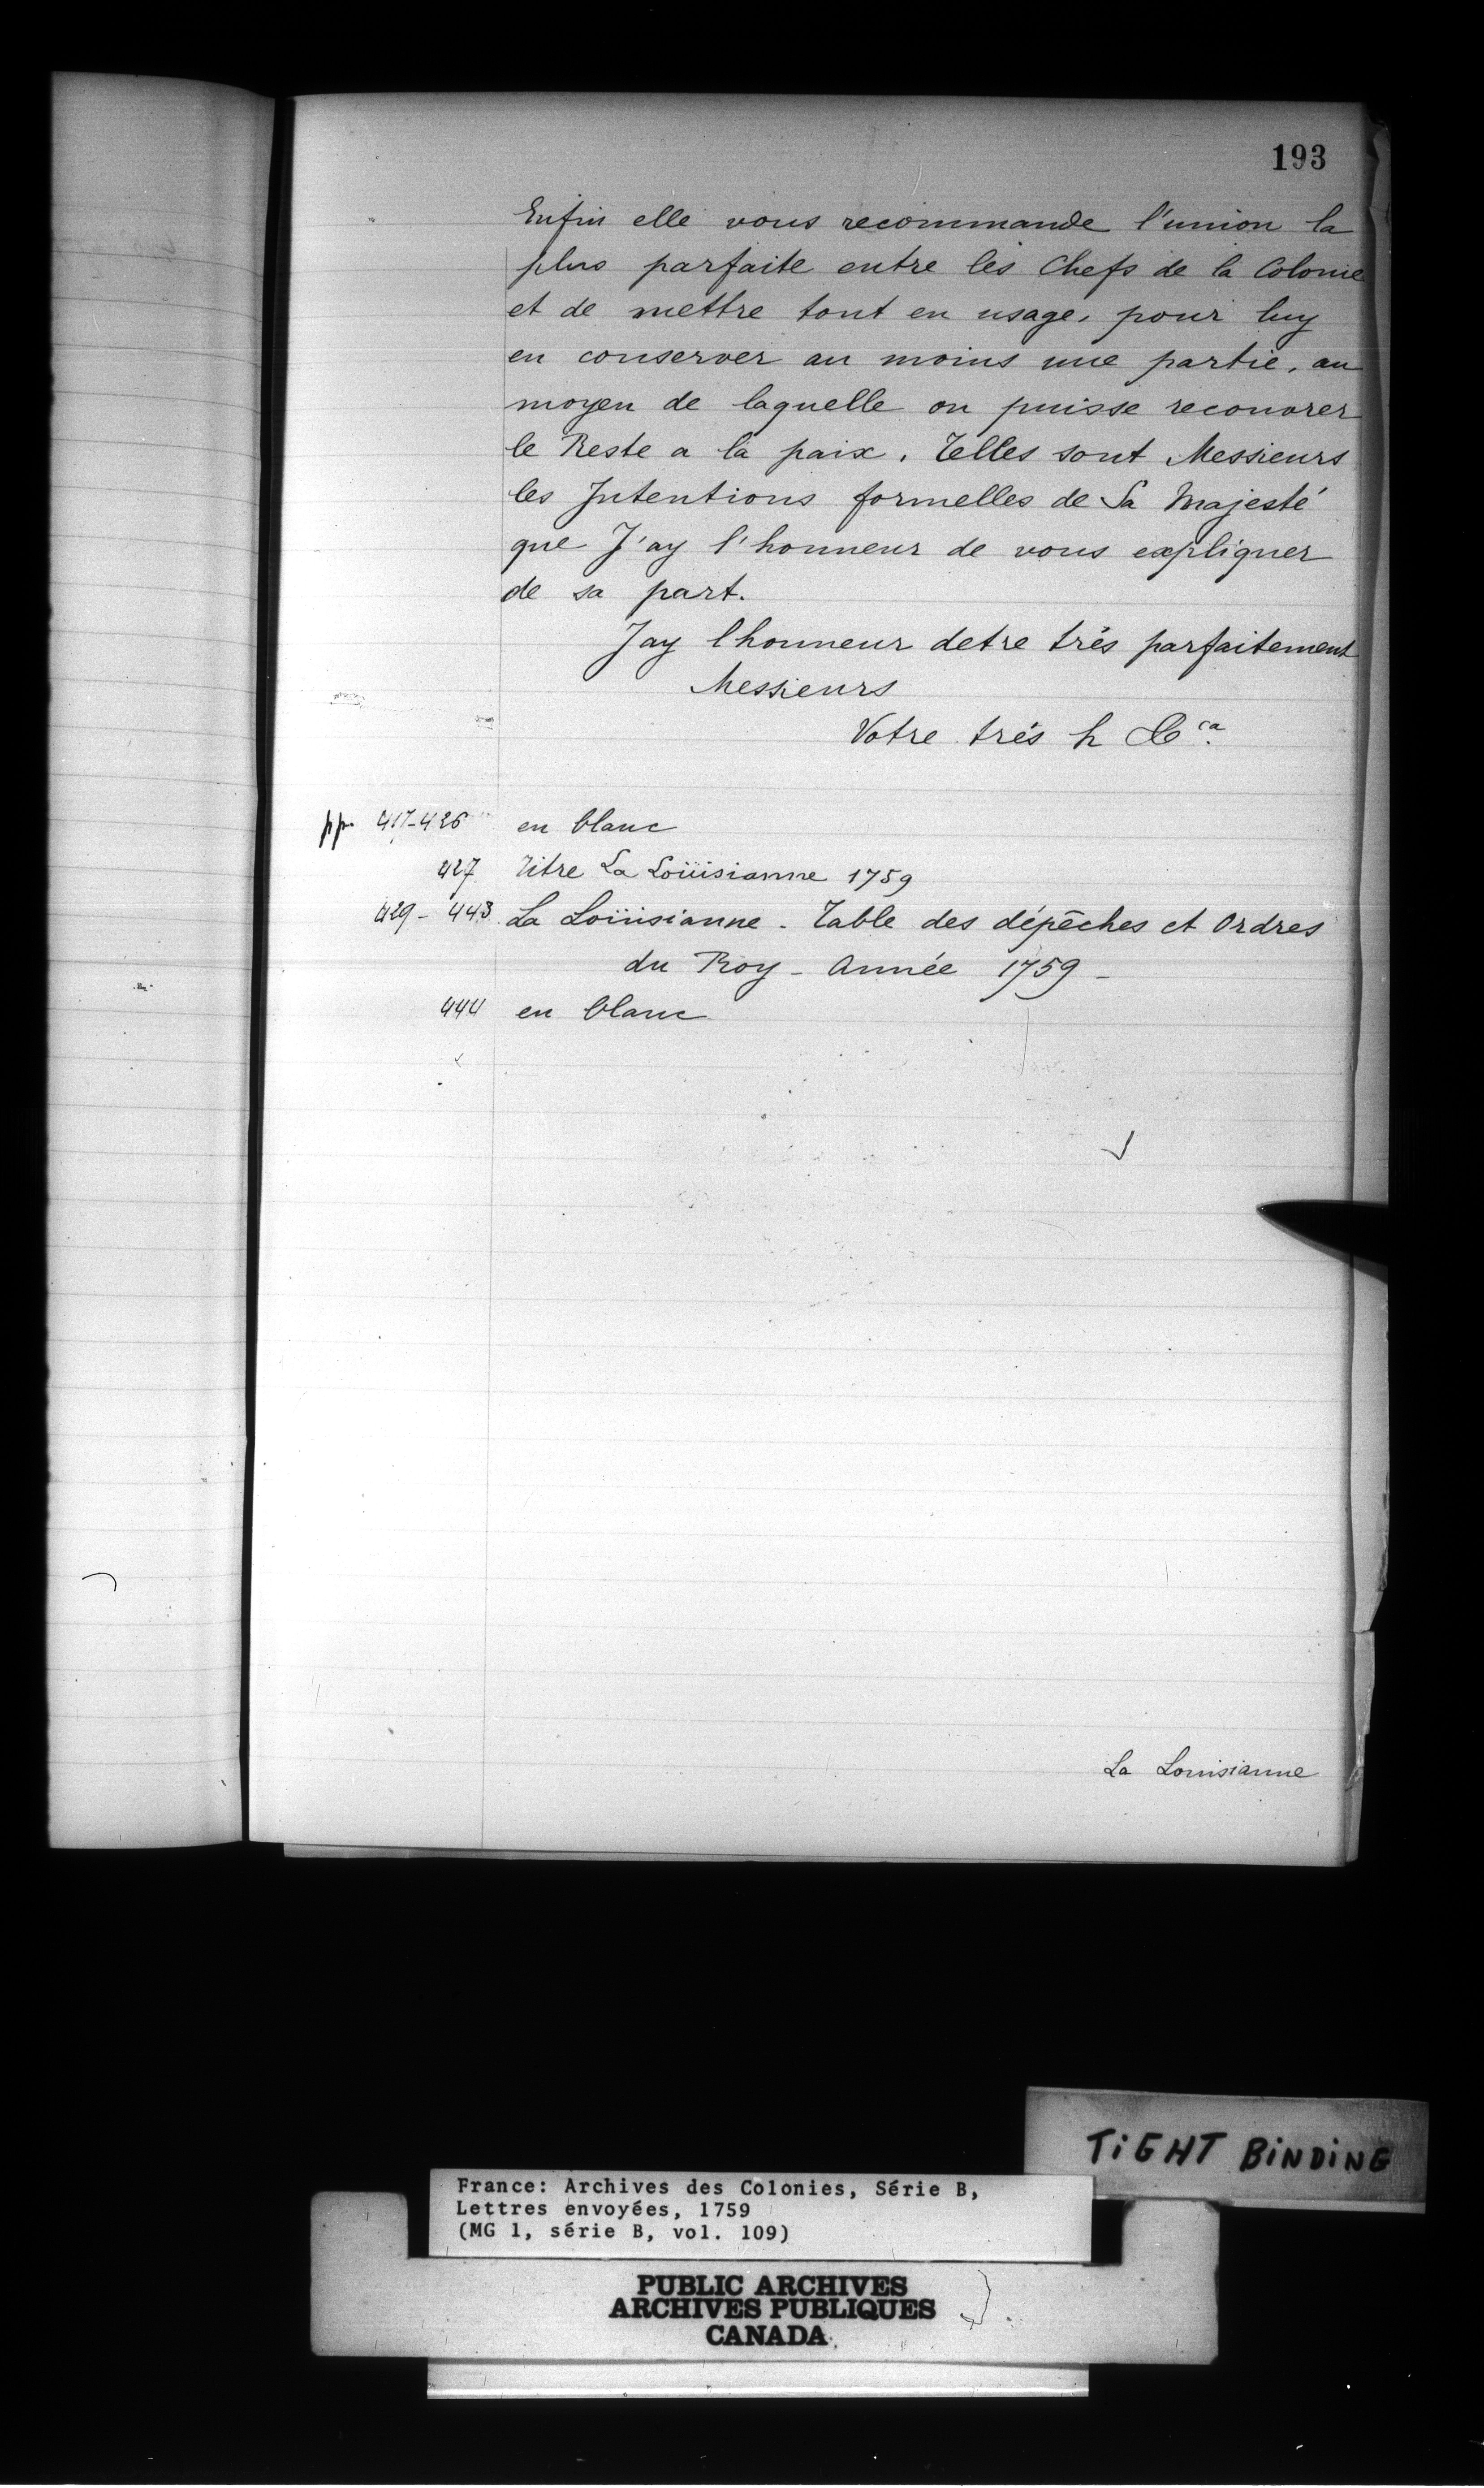 193
Enfin elle vous recommande l'union la
plus parfaite entre les Chefs de la Colonie
et de mettre tout en usage, pour luy
en conserver au moins une partie, au
moyen de laquelle on puisse recouvrer
le Reste a la paix. Telles sont Messieurs
les Intentions formelles de Sa Majesté
que J'ay l'honneur de vous expliquer
de sa part.
Jay lhonneur detre trés parfaitement
Messieurs
Votre trés h &ca.
pp. 417-426 en blanc
427 Titre La Loüisianne 1759
429-443 La Loüisianne - Table des dépêches et Ordres
du Roy - Année 1759 -
444 en blanc
La Louisianne
TiGHT BiNDiNG
France: Archives des Colonies, Série B,
Lettres envoyées, 1759
(MG 1, série B, vol. 109)
PUBLIC ARCHIVES
ARCHIVES PUBLIQUES
CANADA